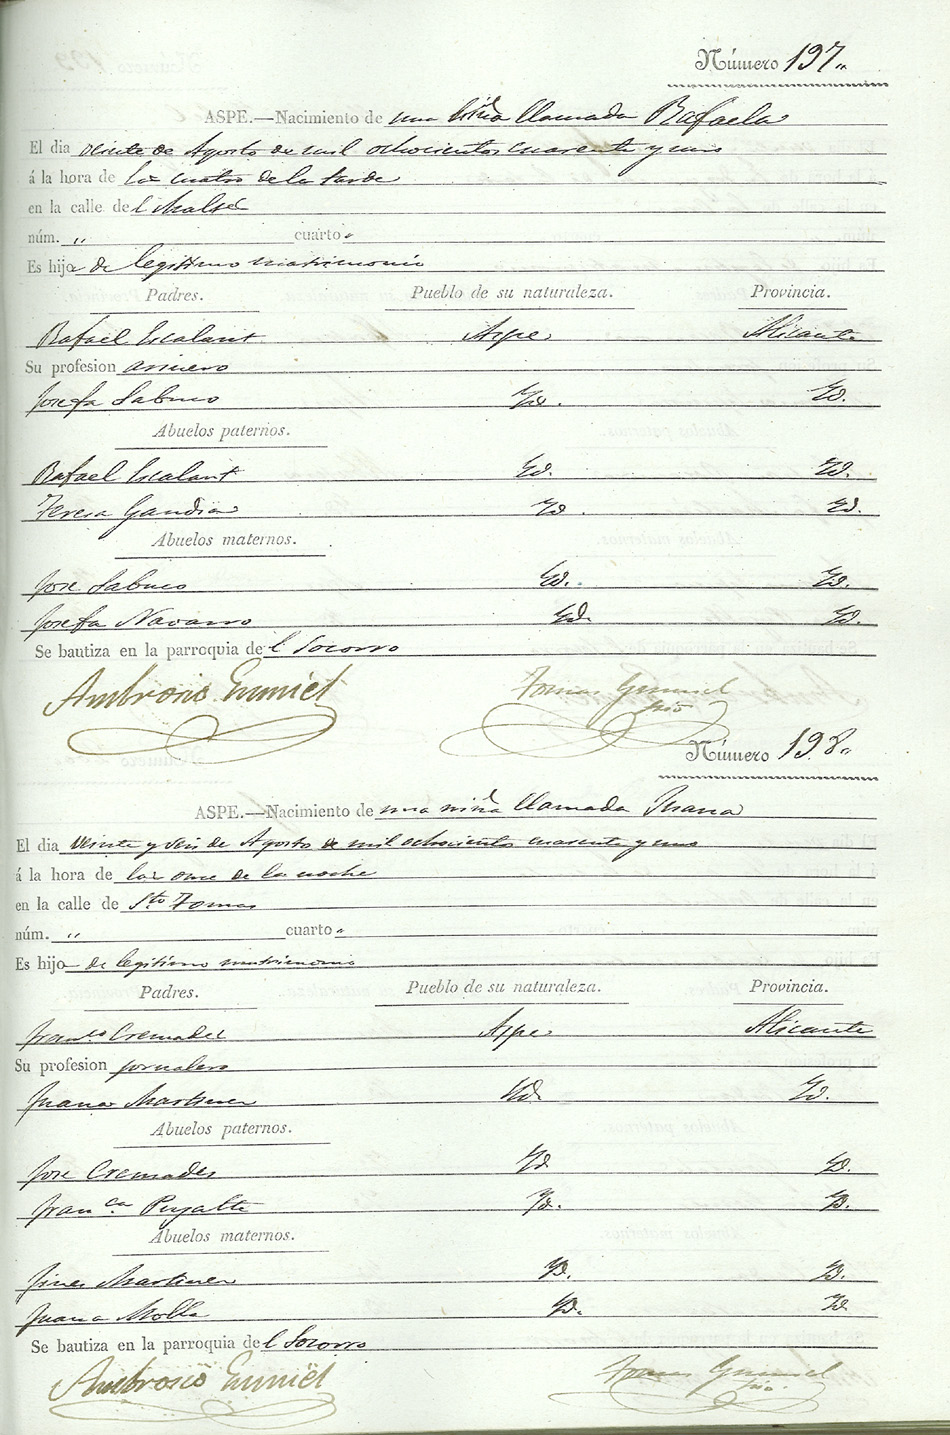 Número 197.
ASPE.—Nacimiento de una niña llamada Rafaela
El dia veinte de Agosto de mil ochocientos cuarenta y uno
á la hora de las cuatro de la tarde
en la calle de
núm. " cuarto "
Es hijo de legítimo matrimonio
Padres. Pueblo de su naturaleza. Provincia.
Rafael Escalant Aspe Alicante
Su profesion arriero
Josefa Sabuco Yd. Yd.
Abuelos paternos.
Rafael Escalant Yd. Yd.
Teresa Gandia Yd. Yd.
Abuelos maternos.
Jose Sabuco Yd. Yd.
Josefa Navarro Yd. Yd.
Se bautiza en la parroquia del Socorro
Ambrosio
Tomas
Número 198.
ASPE.—Nacimiento de una niña llamada Juana
El dia veinte y seis de Agosto de mil ochocientos cuarenta y uno
á la hora de las once de la noche
en la calle de Sto Tomas
núm. " cuarto "
Es hijo de legitimo matrimonio
Padres. Pueblo de su naturaleza. Provincia.
Franco Cremades Aspe Alicante
Su profesion jornalero
Juana Martinez Yd. Yd.
Abuelos paternos.
Jose Cremades Yd. Yd.
Franca Pujalte Yd. Yd.
Abuelos maternos.
Jines Martinez Yd. Yd.
Juana Molla Yd. Yd.
Se bautiza en la parroquia del Socorro
Ambrosio
Tomas